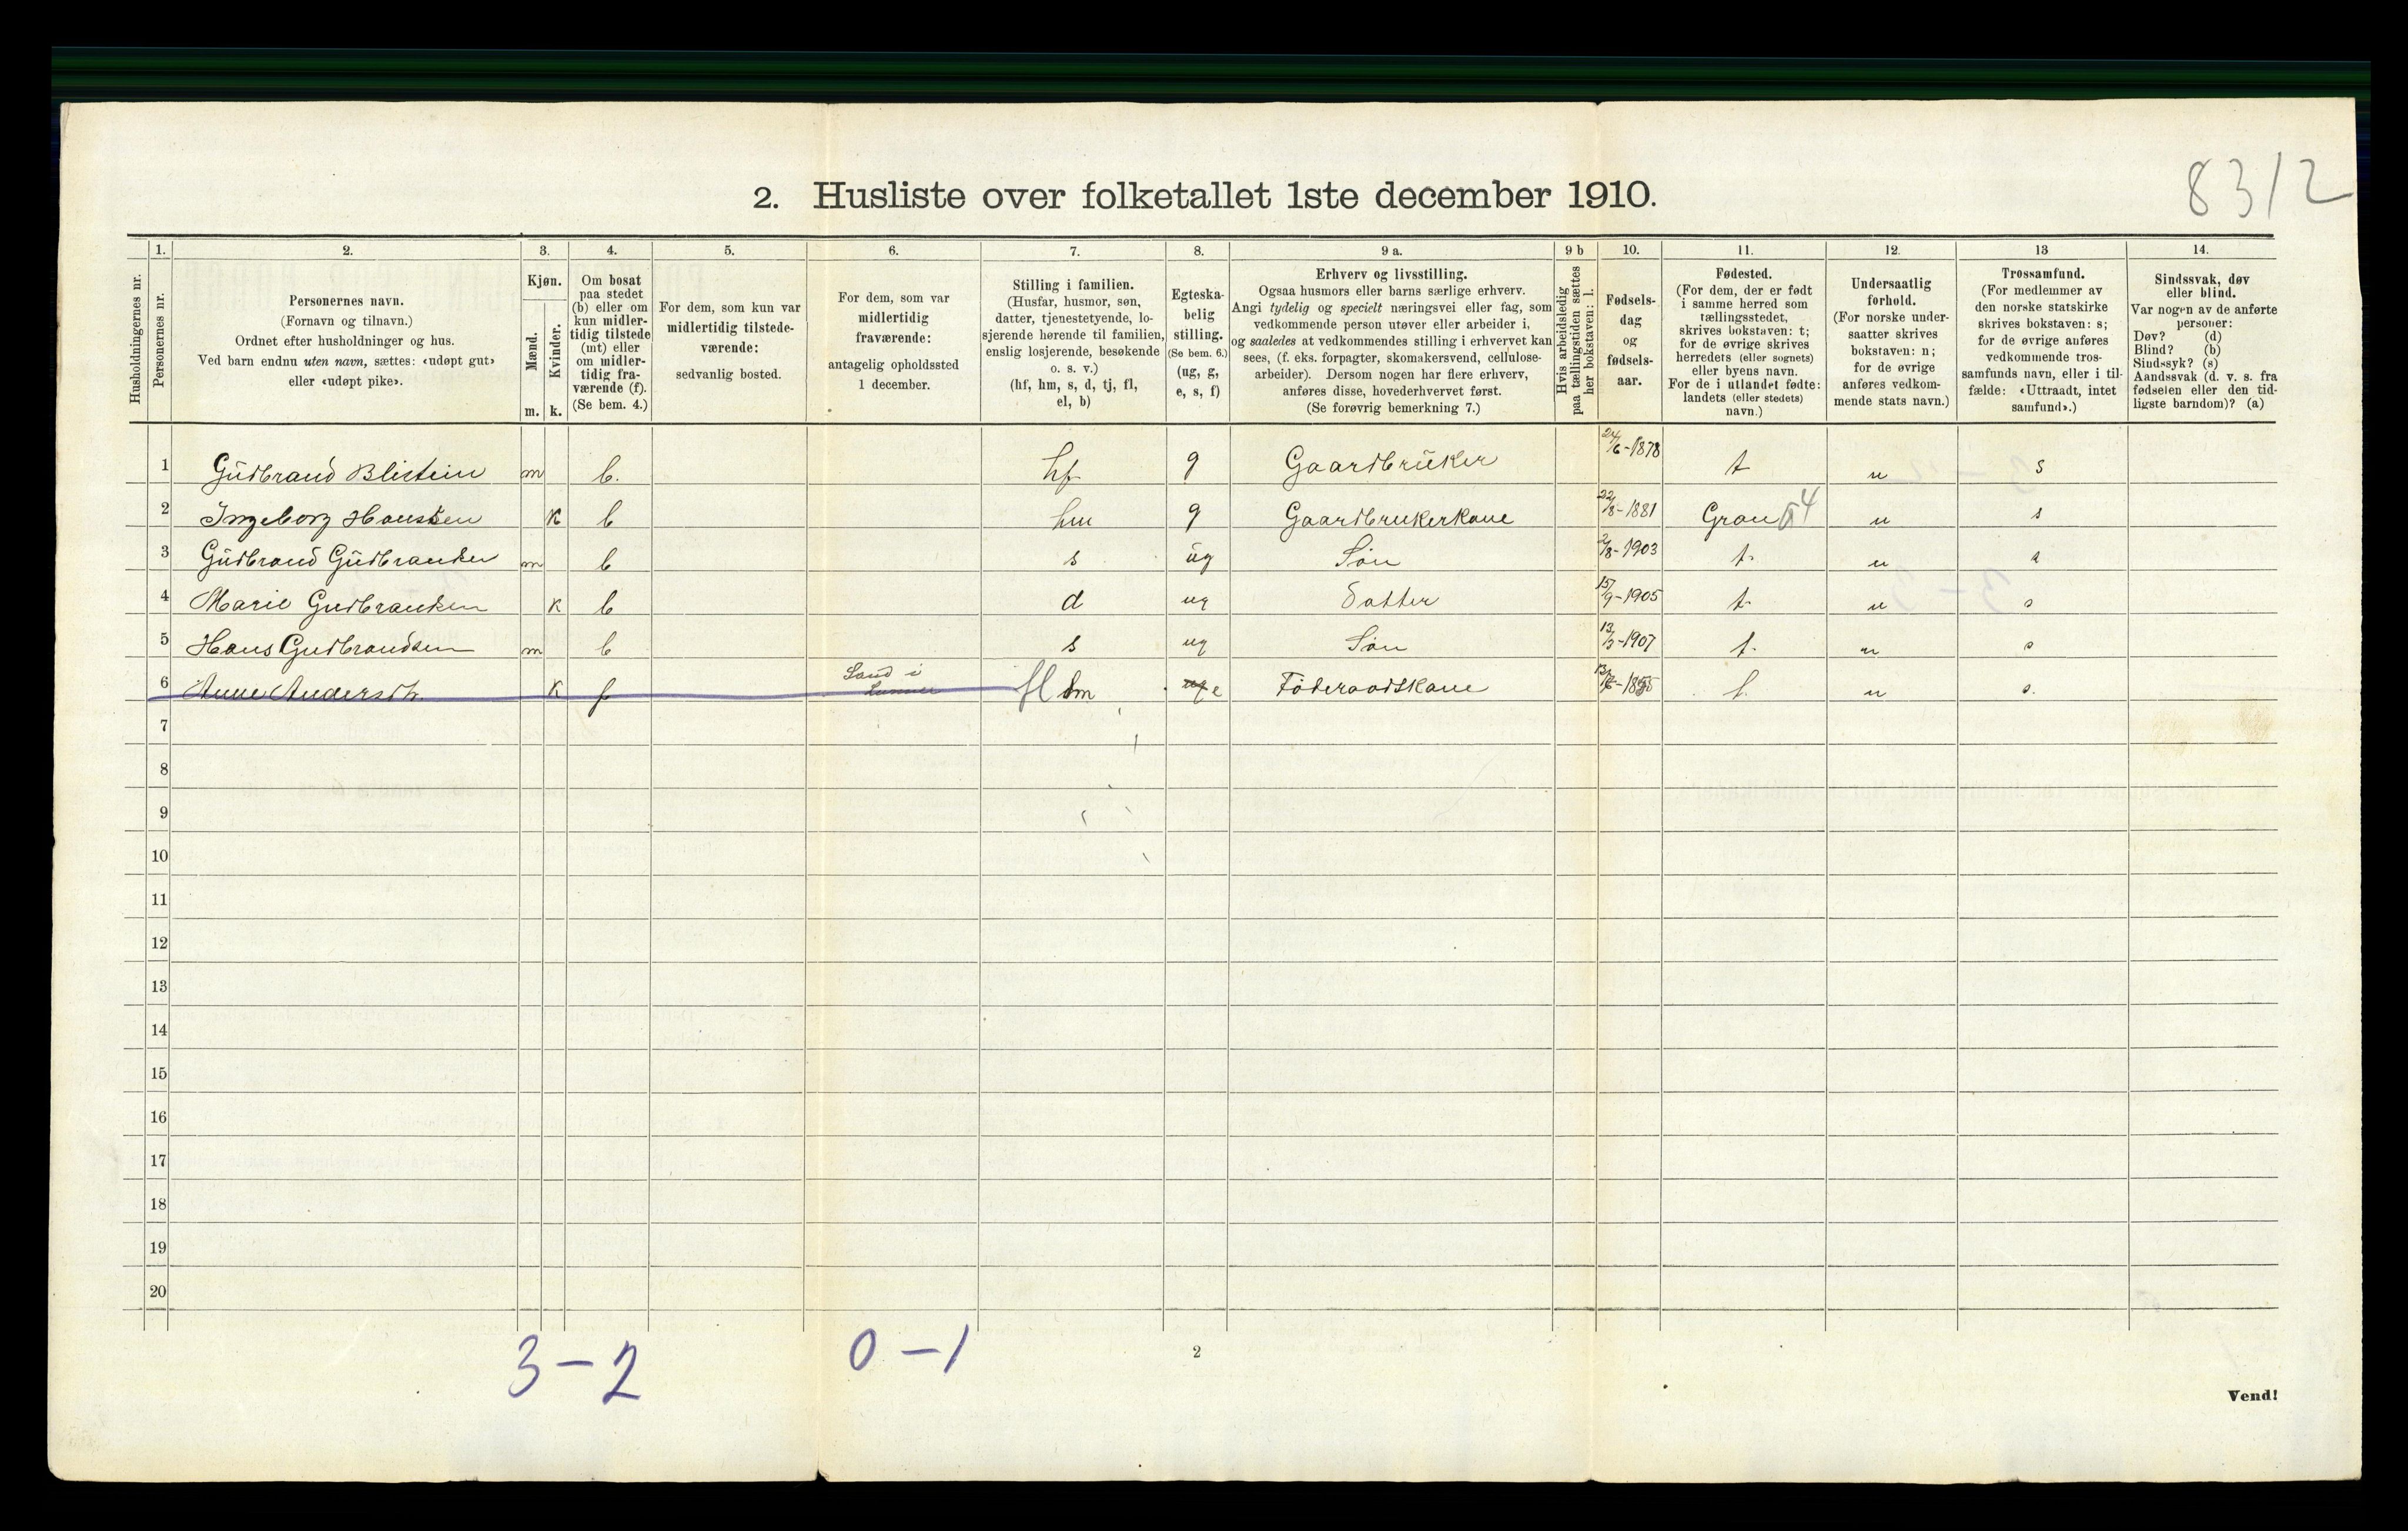 8312
2. Husliste over folketallet 1ste december 1910.
1. 2. 3. 4. 5. 6. 7. 8. 9 a. 9 b 10. 11. 12. 13 14.
Husholdningernes nr.
Personernes nr.
Personernes navn.
(Fornavn og tilnavn.)
Ordnet efter husholdninger og hus.
Ved barn endnu uten navn, sættes: «udøpt gut»
eller «udøpt pike».
Kjøn.
Mænd.
Kvinder.
m. k.
Om bosat
paa stedet
(b) eller om
kun midler-
tidig tilstede
(mt) eller
om midler-
tidig fra-
værende (f).
(Se bem. 4.)
For dem, som kun var
midlertidig tilstede-
værende:
sedvanlig bosted.
For dem, som var
midlertidig
fraværende:
antagelig opholdssted
1 december.
Stilling i familien.
(Husfar, husmor, søn,
datter, tjenestetyende, lo-
sjerende hørende til familien,
enslig losjerende, besøkende
o. s. v.)
(hf, hm, s, d, tj, fl,
el, b)
Egteska-
belig
stilling.
(Se bem. 6.)
(ug, g,
e, s, f)
Erhverv og livsstilling.
Ogsaa husmors eller barns særlige erhverv.
Angi tydelig og specielt næringsvei eller fag, som
vedkommende person utøver eller arbeider i,
og saaledes at vedkommendes stilling i erhvervet kan
sees, (f. eks. forpagter, skomakersvend, cellulose-
arbeider). Dersom nogen har flere erhverv,
anføres disse, hovederhvervet først.
(Se forøvrig bemerkning 7.)
Hvis arbeidsledig
paa tællingstiden sættes
her bokstaven: l.
Fødsels-
dag
og
fødsels-
aar.
Fødested.
(For dem, der er født
i samme herred som
tællingsstedet,
skrives bokstaven: t;
for de øvrige skrives
herredets (eller sognets)
eller byens navn.
For de i utlandet fødte:
landets (eller stedets)
navn.)
Undersaatlig
forhold.
(For norske under-
saatter skrives
bokstaven: n;
for de øvrige
anføres vedkom-
mende stats navn.)
Trossamfund.
(For medlemmer av
den norske statskirke
skrives bokstaven: s;
for de øvrige anføres
vedkommende tros-
samfunds navn, eller i til-
fælde: «Uttraadt, intet
samfund».)
Sindssvak, døv
eller blind.
Var nogen av de anførte
personer:
Døv? (d)
Blind? (b)
Sindssyk? (s)
Aandssvak (d. v. s. fra
fødselen eller den tid-
ligste barndom)? (a)
1 Gudbrand Blistein m b. hf g Gaardbruker 24/6-1878 t n s
2 Ingeborg Hansen k b hm g Gaardbrukerkone 22/8-1881 Gran 4 n s
3 Gudbrand Gudbrandsen m b s ug Søn 2/8-1903 t. n s
4 Marie Gudbrandsen k b d ug Datter 15/9-1905 t n s
5 Hans Gudbrandsen m b s ug Søn 1907 t. n s
6 Anne Andersdt. k f Sand i Lunner fl ug e Føderaadskone t. n s.
7
8
9
10
11
12
13
14
15
16
17
18
19
20
3-2 0-1
2
Vend!